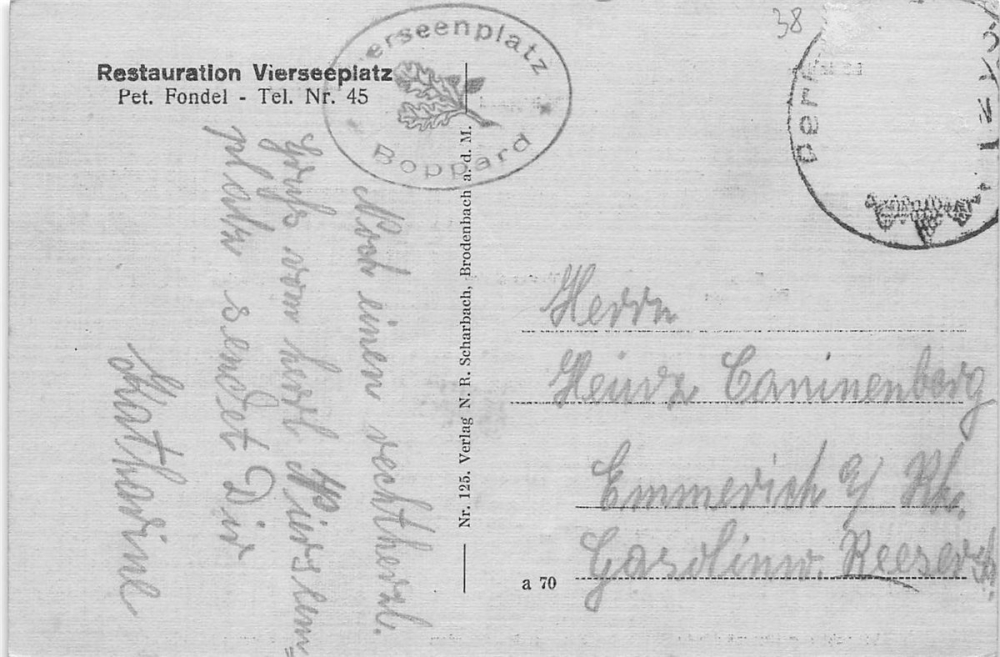 Restauration Vierseeplatz
Pet. Fondel - Tel. Nr. 45
erseenplatz
Boppard
38
Noch einen rechtherzl.
Gruß vom herrl. Vierseen=
platz sendet Dir
Katharine
Nr. 125. Verlag N. R. Scharbach, Brodenbach a. d. M.
a 70
Der
Herrn
Heinz Caninenberg
Emmerich a/ Rh.
Gasolinw. Reeserst